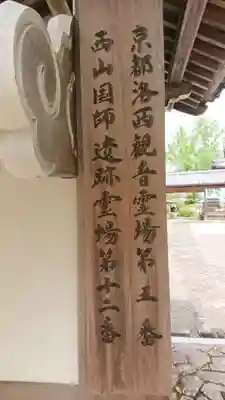 京都洛西觀音霊場第五番
西山国師遺跡霊場第十二番